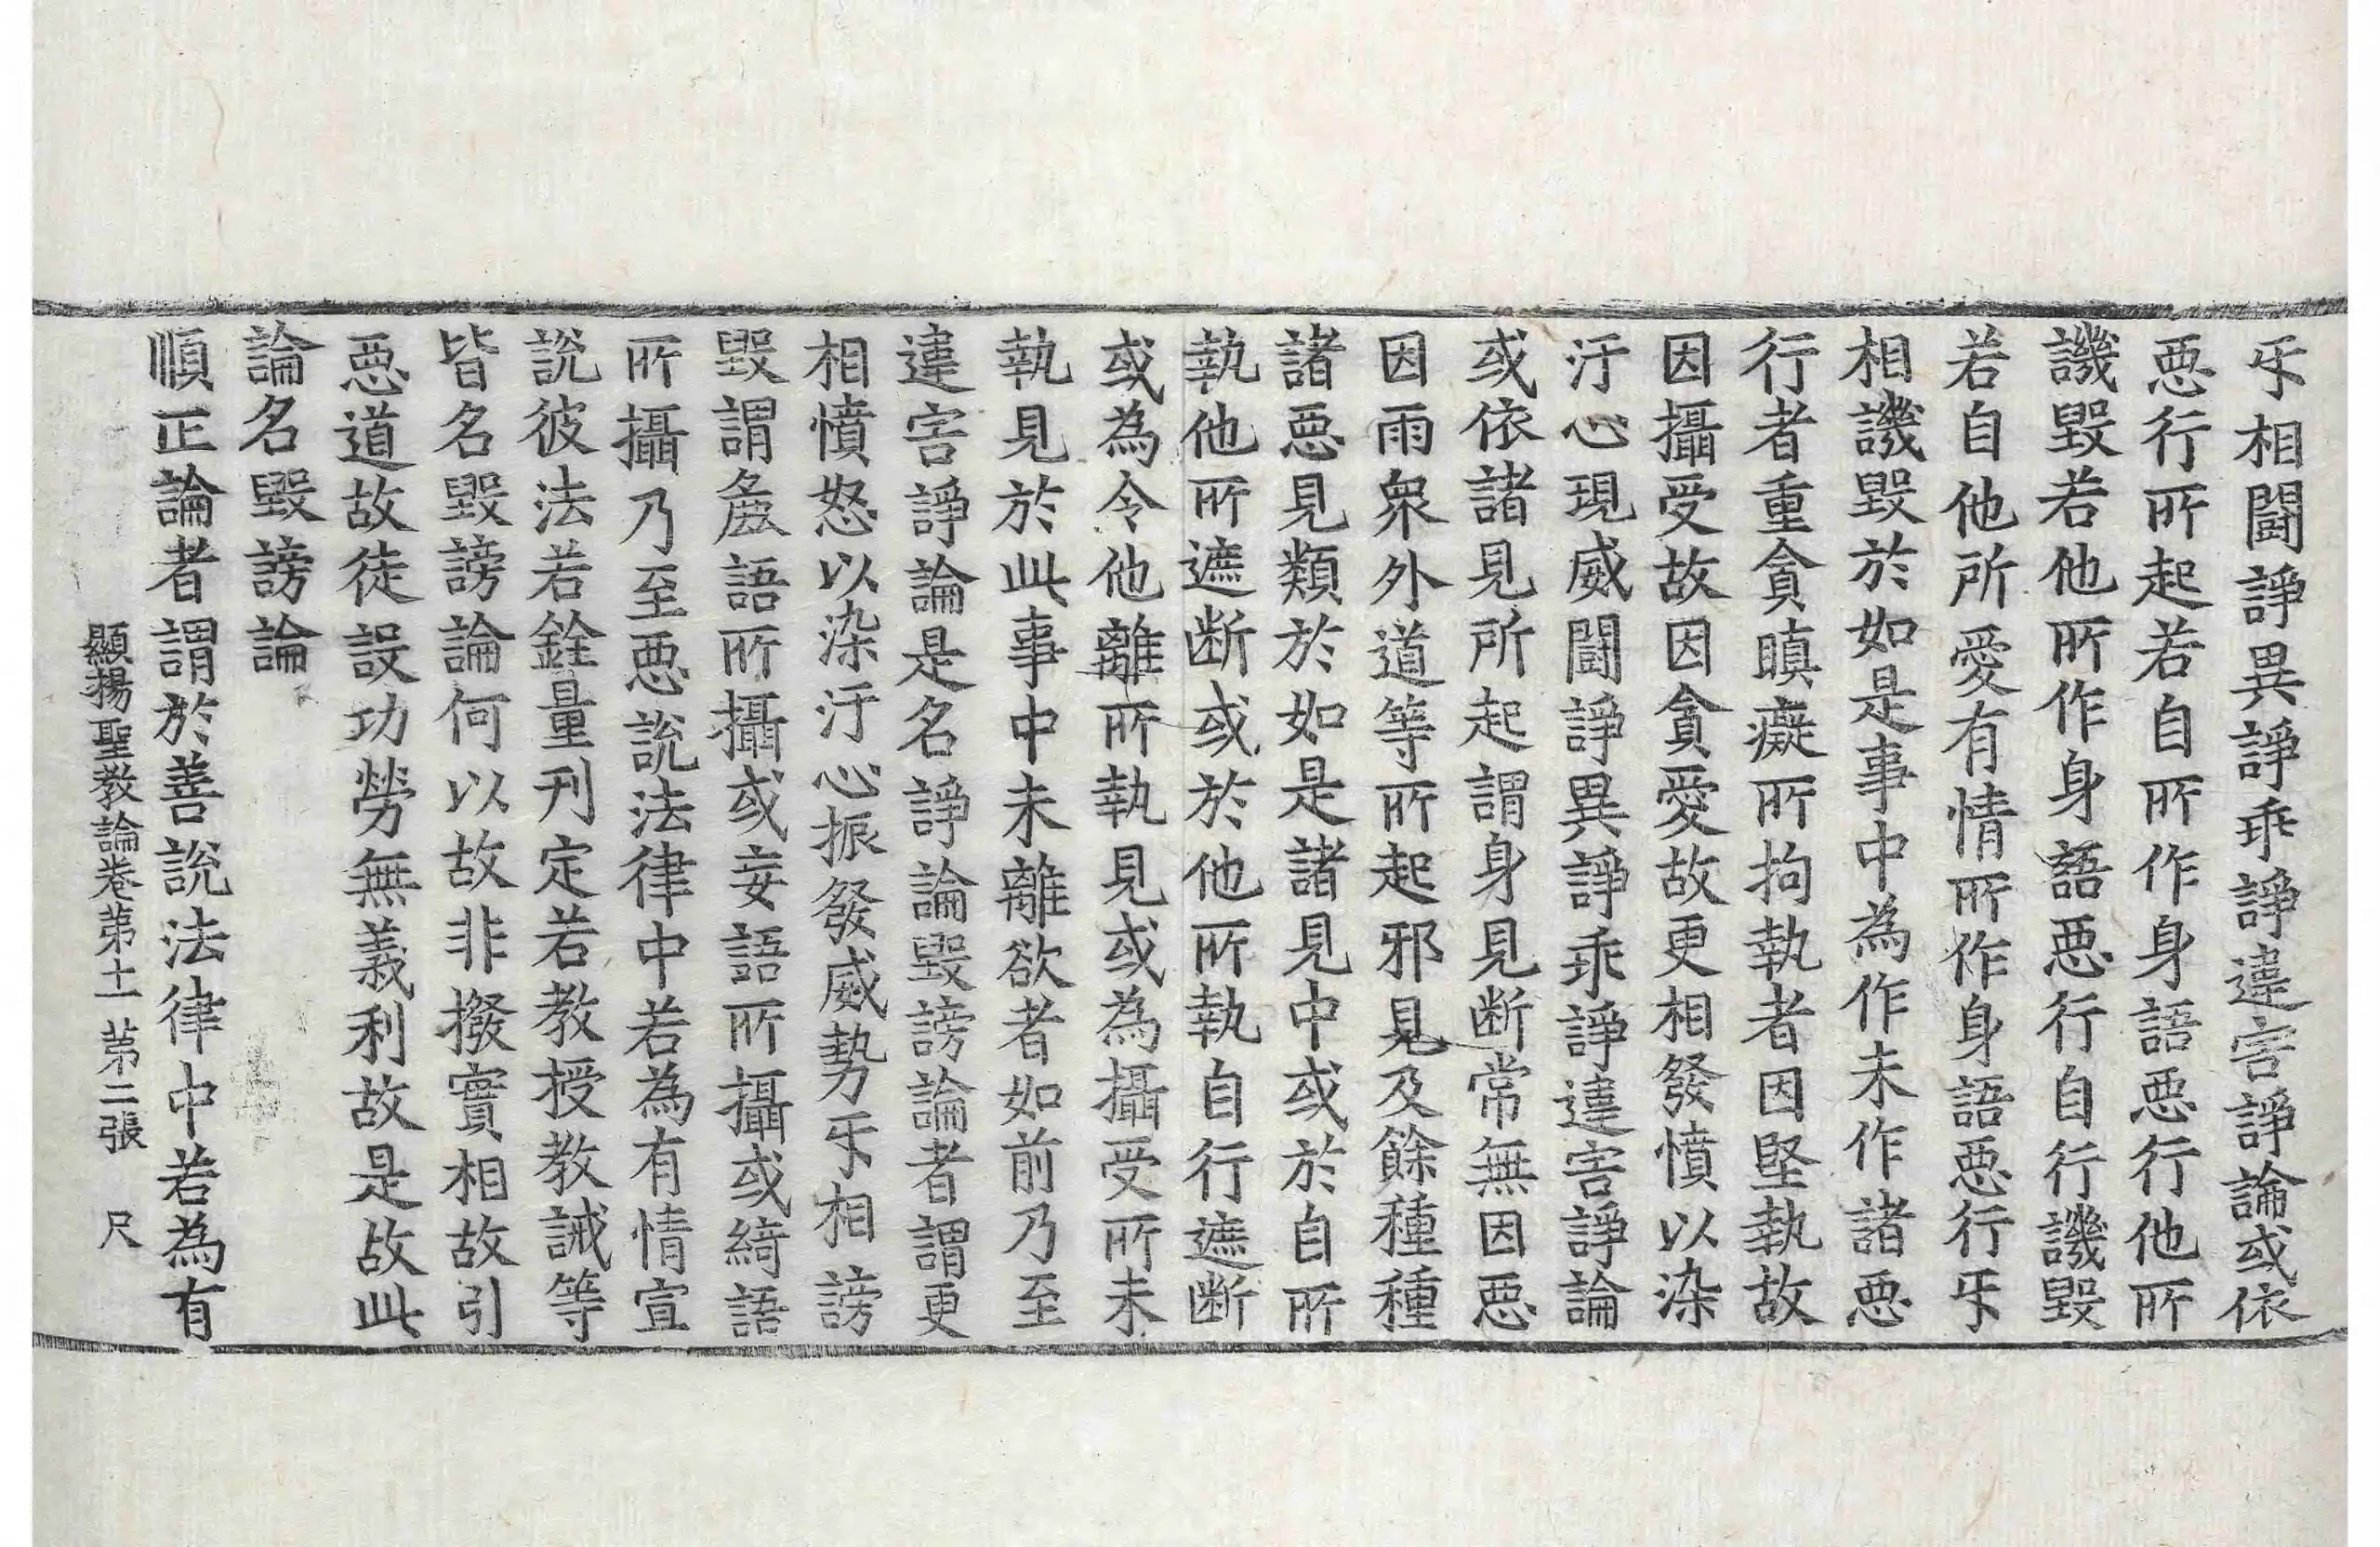 乑相鬪諍異諍乖諍違害諍論或依
惡行所起若自所作身語惡行他所
譏毀若他所作身語惡行自行譏毀
若自他所愛有情所作身語惡行乑
相譏毀於如是事中為作未作諸惡
行者重貪瞋癡所拘執者因堅執故
因攝受故因貪愛故更相發憤以染
汙心現威鬪諍異諍乖諍違害諍論
或依諸見所起謂身見断常無因惡
因雨衆外道等所起邪見及餘種種
諸惡見類於如是諸見中或於自所
執他所遮断或於他所執自行遮断
或為令他離所執見或為攝受所未
執見於此事中未離欲者如前乃至
違害諍論是名諍論毀謗論者謂更
相憤怒以染汙心振發威勢乑相謗
毀謂麁語所攝或妄語所攝或綺語
所攝乃至惡說法律中若為有情宣
說彼法若銓量刊定若教授教誡等
皆名毀謗論何以故非撥實相故引
惡道故徒設功勞無義利故是故此
論名毀謗論
順正論者謂於善說法律中若為有
顯揚聖教論卷第十一 第二張 尺